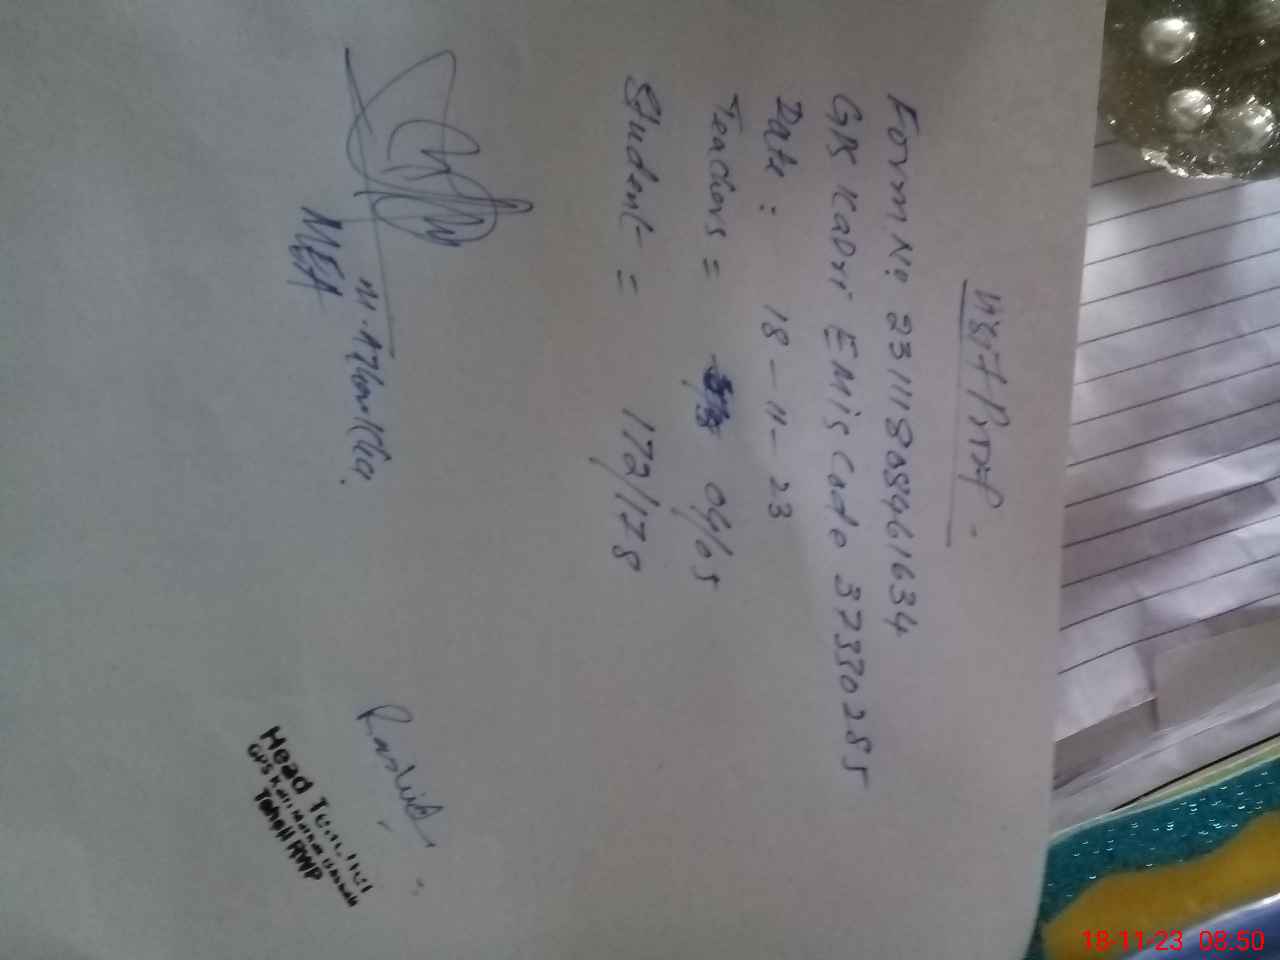 Visit Proof.
Form No 231118084461634
GPS Kadri EMis Code 37330285
Date: 18-11-23
Teachers = 04/05
Student = 172/178
MEA
Rashid
Head Teacher
GPS
Tehsil RWP
18-11-23 08:50